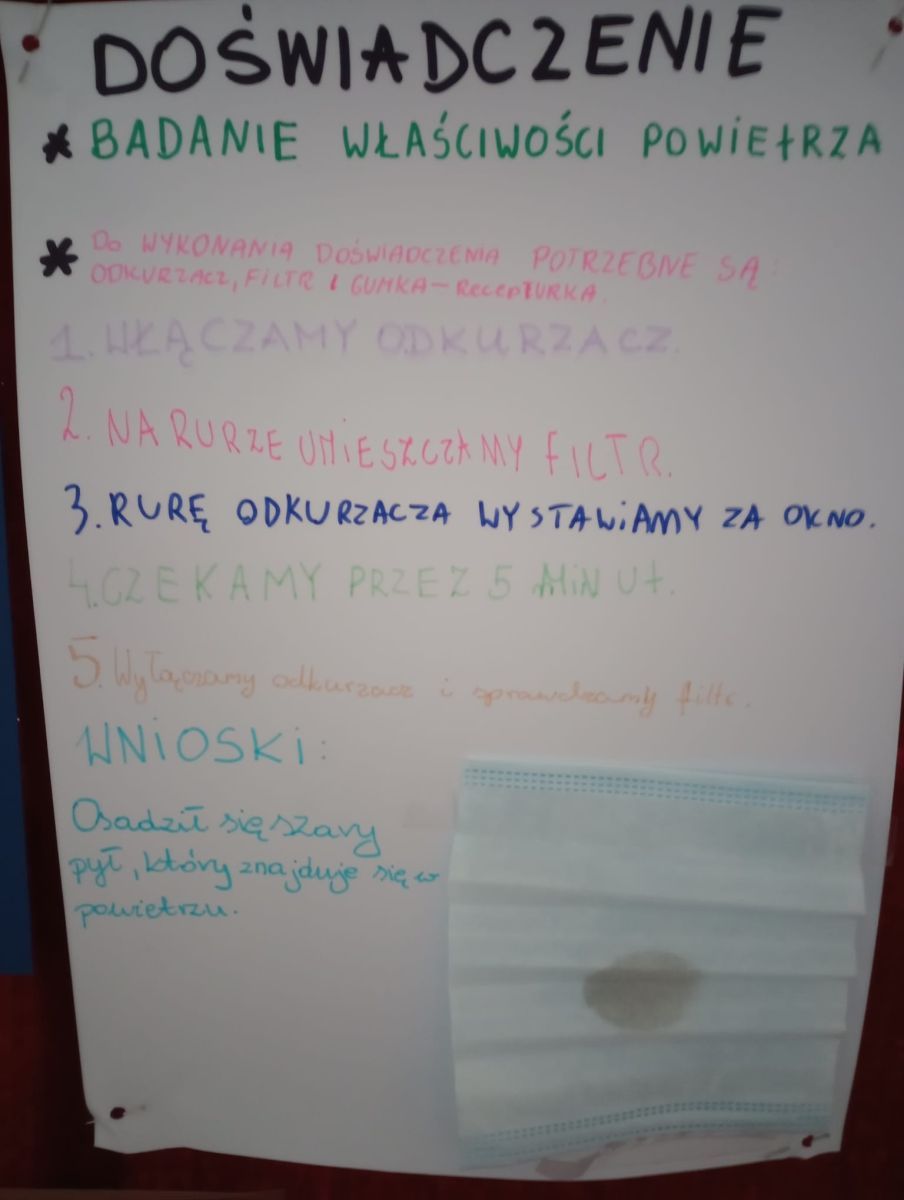 DOŚWIADCZENIE
* BADANIE WŁAŚCIWOŚCI POWIEtRZA
* Do WYKONANIA DOŚWIADCZENIA POTRZEBNE SĄ:
ODKURZACZ, FILTR I GUMKA-RecepTURKA.
1. WŁĄCZAMY ODKURZACZ.
2. NA RURZE UMIESZCZAMY FILTR.
3. RURĘ ODKURZACZA WYSTAWiAMY ZA OKNO.
4. CZEKAMY PRZEZ 5 MiNUt.
5. Wyłączamy odkurzacz i sprawdzamy filtr.
WNiOSKi:
Osadził się szary
pył, który znajduje się w
powietrzu.